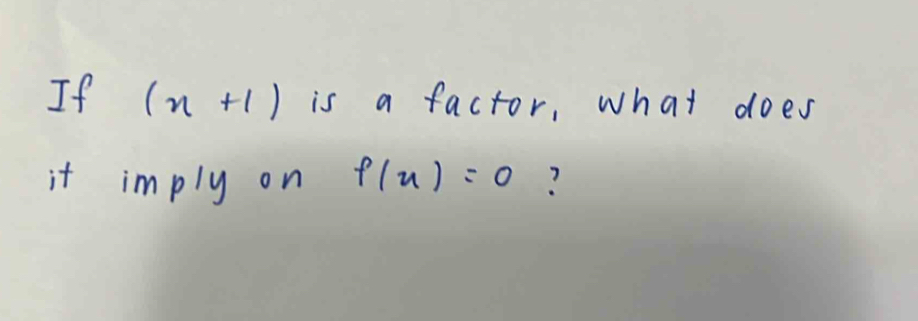 If (x+1) is a factor, what does
it imply on f(x) = 0 ?